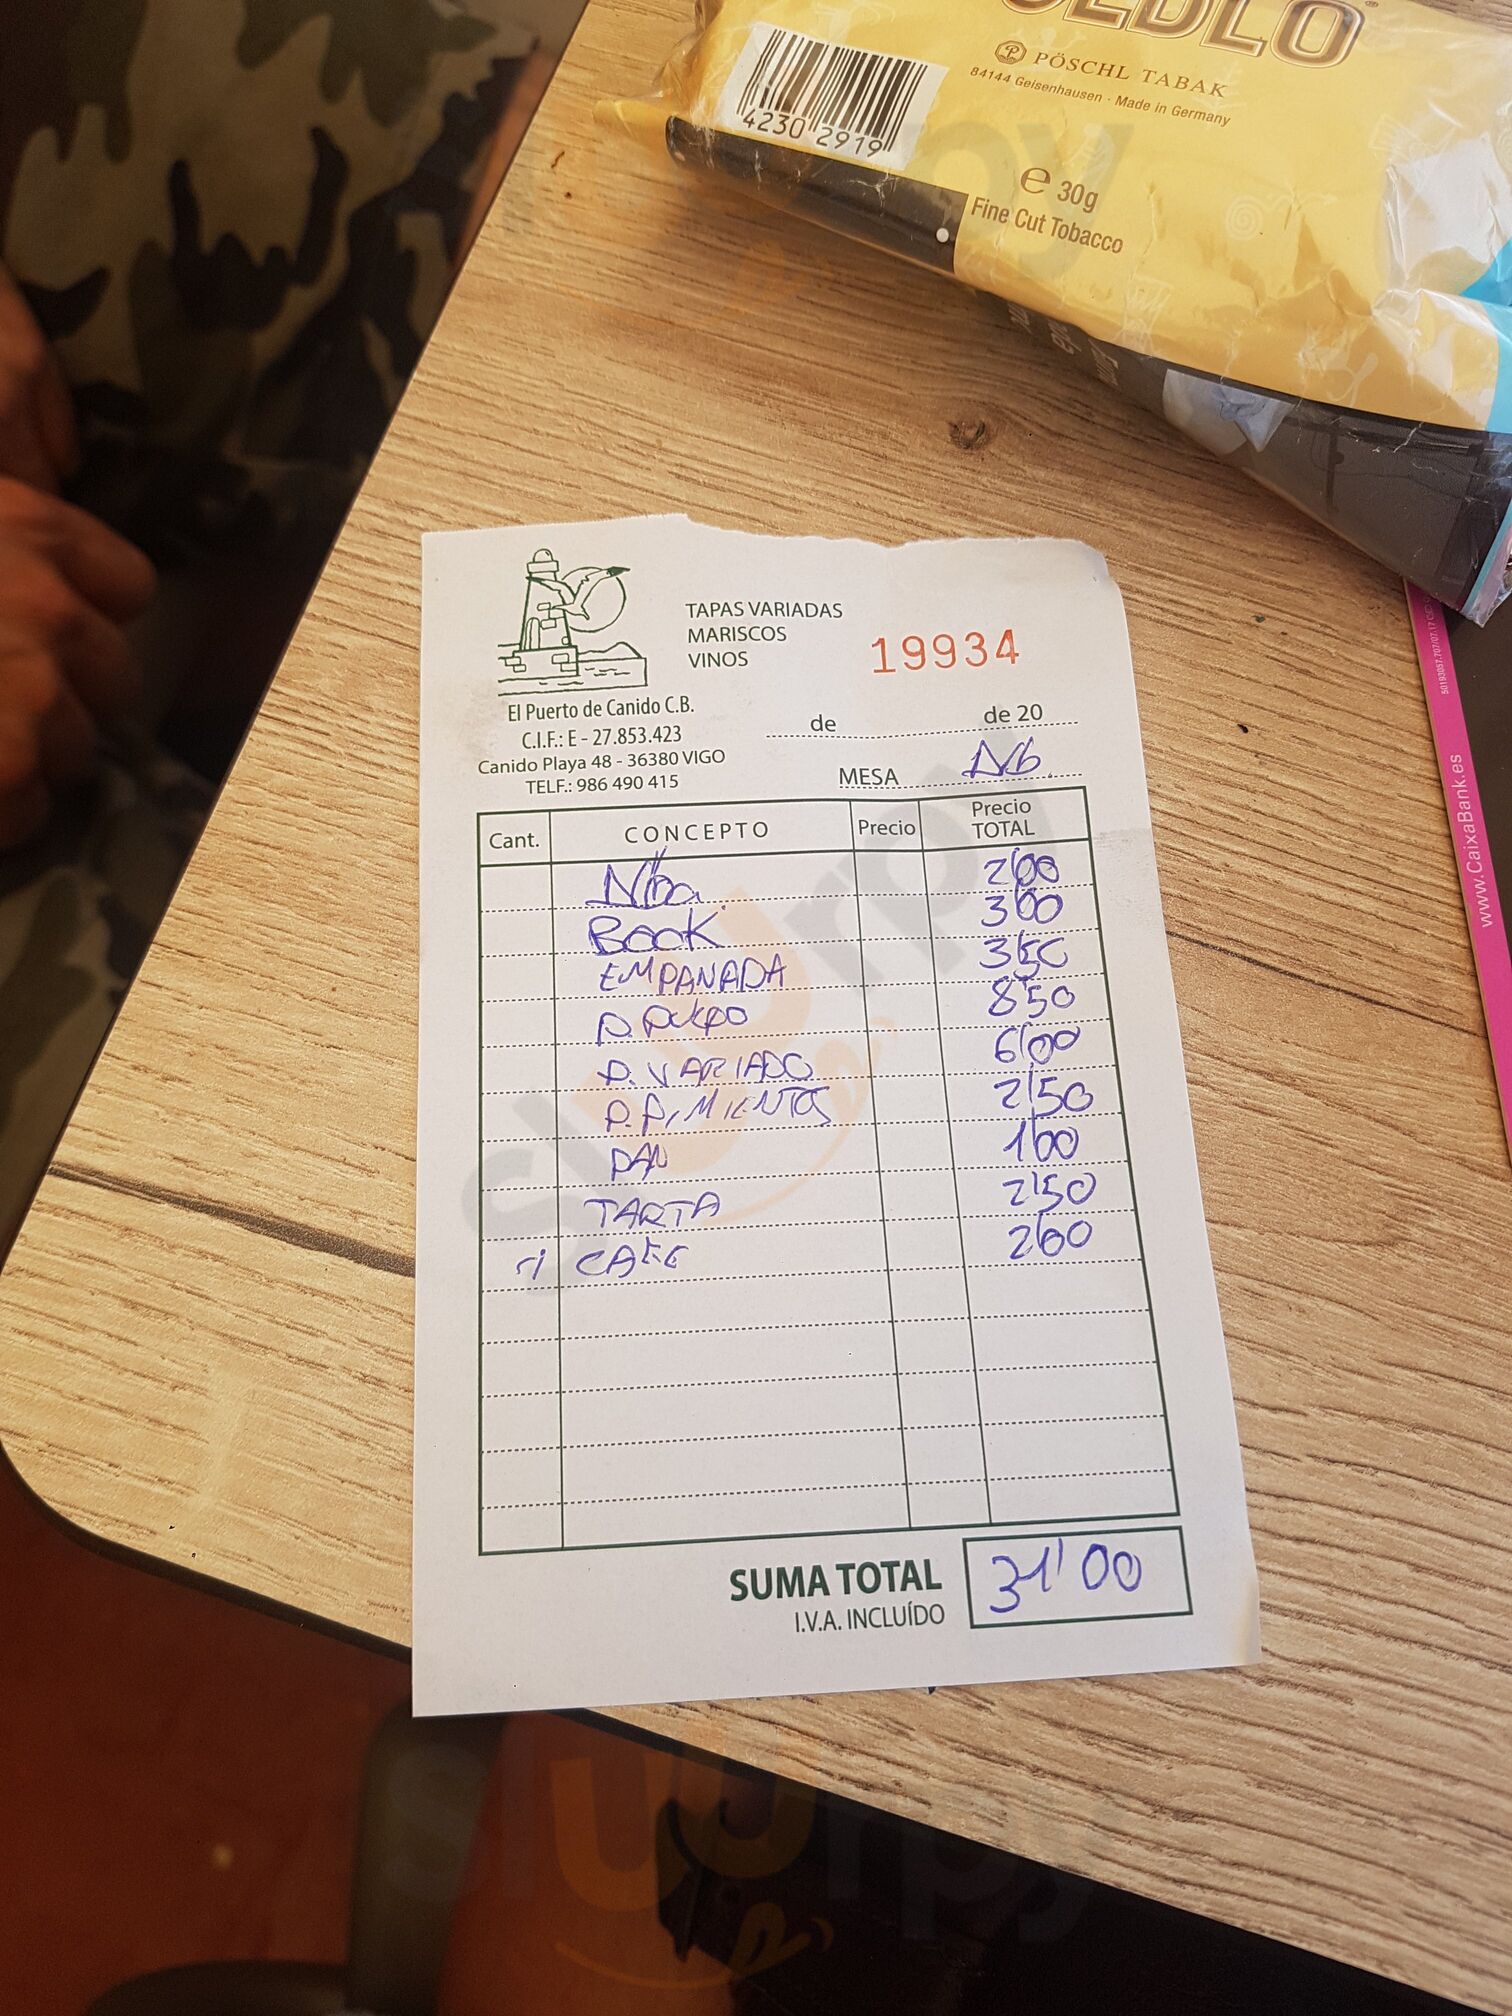 PÖSCHL TABAK
84144 Geisenhausen · Made in Germany
4230 2919
e 30g
Fine Cut Tobacco
www.CaixaBank.es
TAPAS VARIADAS
MARISCOS
VINOS
19934
El Puerto de Canido C.B.
C.I.F.: E - 27.853.423
Canido Playa 48 - 36380 VIGO
TELF.: 986 490 415
de de 20
MESA
Cant. CONCEPTO Precio Precio TOTAL
2'00
BOCK 3'00
EMPANADA 3'50
P. PULPO 8'50
P. VARIADO 6'00
P. PIMIENTOS 2'50
PAN 1'00
TARTA 2'50
CAFE 2'00
SUMA TOTAL 31'00
I.V.A. INCLUÍDO
slurpy
slurpy
slurpy